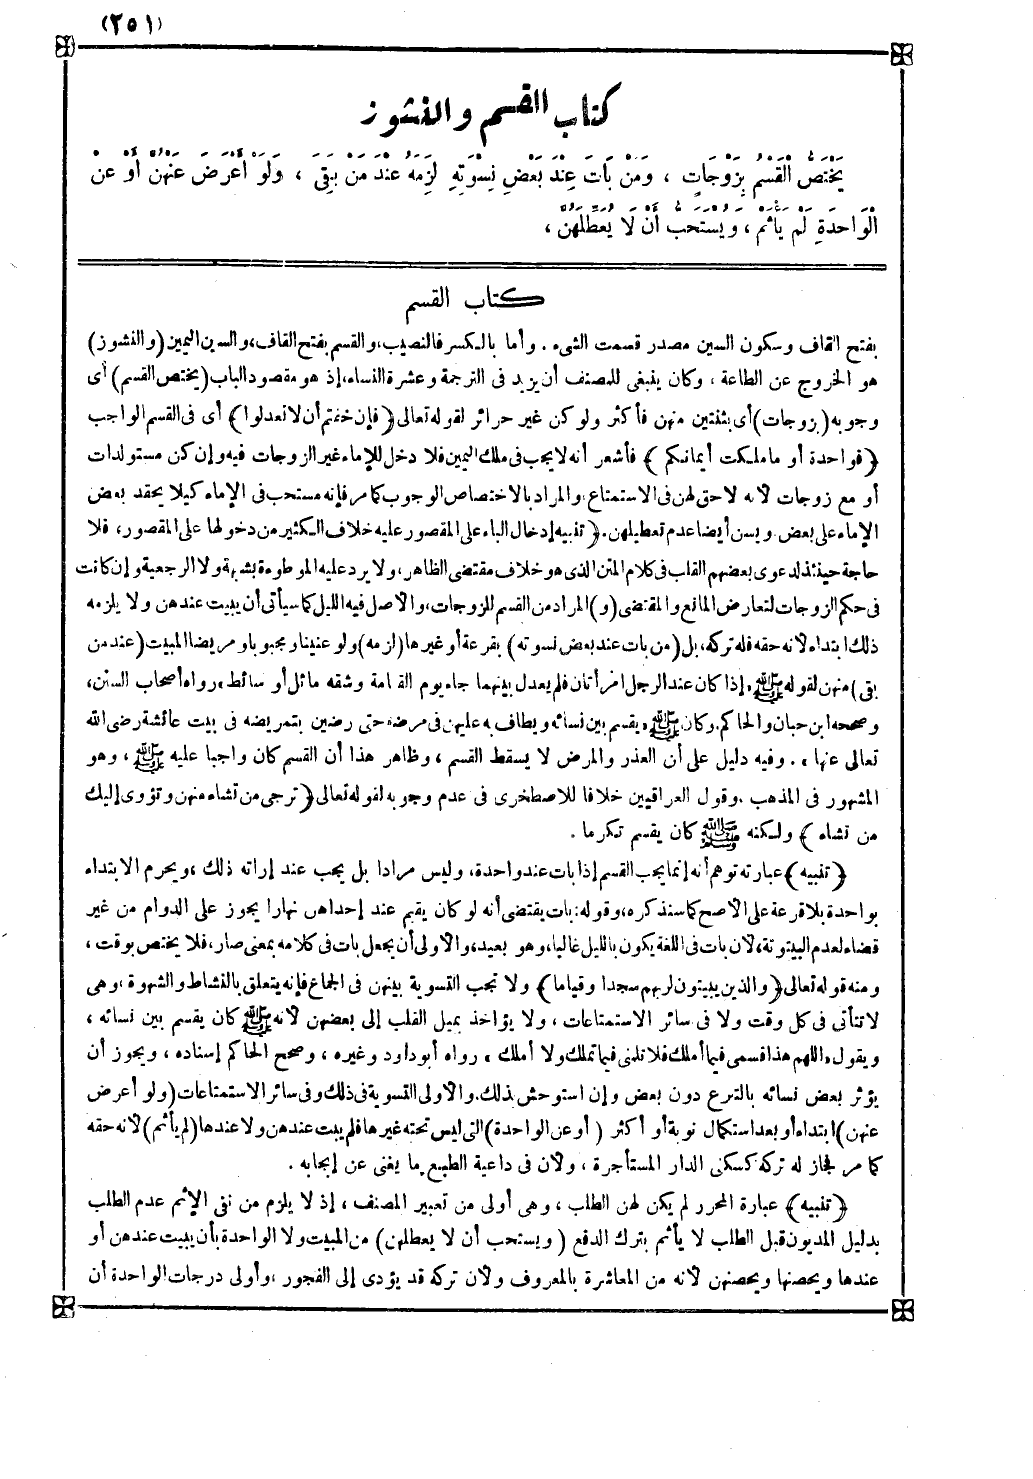 (٢٥١)
كتاب القسم والنشوز
يَخْتَصُّ الْقَسْمُ بِزَوْجَاتٍ ، وَمَنْ بَاتَ عِنْدَ بَعْضِ نِسْوَتِهِ لَزِمَهُ عِنْدَ مَنْ بَقِيَ ، وَلَوْ أَعْرَضَ عَنْهُنَّ أَوْ عَنْ
الْوَاحِدَةِ لَمْ يَأْثَمْ ، وَيُسْتَحَبُّ أَنْ لَا يُعَطِّلَهُنَّ ،
كتاب القسم
بفتح القاف وسكون السين مصدر قسمت الشىء . وأما بالكسر فالنصيب، والقسم بفتح القاف، والسين اليمين (والنشوز)
هو الخروج عن الطاعة ، وكان ينبغى للمصنف أن يزيد فى الترجمة وعشرة النساء، إذ هو مقصود الباب (يختص القسم) أى
وجوبه (بزوجات) أى بثنتين منهن فأكثر ولو كن غير حرائر لقوله تعالى (فإن خفتم أن لا تعدلوا) أى فى القسم الواجب
(فواحدة أو ما ملكت أيمانكم) فأشعر أنه لا يجب فى ملك اليمين فلا دخل للإماء غير الزوجات فيه وإن كن مستولدات
أو مع زوجات لأنه لا حق لهن فى الاستمتاع، والمراد بالاختصاص الوجوب كما مر فإنه مستحب فى الإماء كيلا يحقد بعض
الإماء على بعض. ويسن أيضا عدم تعطيلهن. (تنبيه إدخال الباء على المقصور عليه خلاف الكثير من دخولها على المقصور، فلا
حاجة حينئذ لدعوى بعضهم القلب فى كلام المتن الذى هو خلاف مقتضى الظاهر، ولا يرد عليه الموطوءة بشبهة ولا الرجعية وإن كانت
فى حكم الزوجات لتعارض المانع والمقتضى (و) المراد من القسم للزوجات، والأصل فيه الليل كما سيأتى أن يبيت عندهن ولا يلزمه
ذلك ابتداء لأنه حقه فله تركه، بل (من بات عند بعض نسوته) بقرعة أو غيرها (لزمه) ولو عنينا ومجبوبا ومريضا المبيت (عند من
بقى) منهن لقوله ﷺ «إذا كان عند الرجل امرأتان فلم يعدل بينهما جاء يوم القيامة وشقه مائل أو ساقط» رواه أصحاب السنن،
وصححه ابن حبان والحاكم. وكان ﷺ «يقسم بين نسائه ويطاف به عليهن فى مرضه حتى رضين بتمريضه فى بيت عائشة رضى الله
تعالى عنها» . وفيه دليل على أن العذر والمرض لا يسقط القسم ، وظاهر هذا أن القسم كان واجبا عليه ﷺ ، وهو
المشهور فى المذهب . وقول العراقيين خلافا للاصطخرى فى عدم وجوبه لقوله تعالى (ترجى من تشاء منهن وتؤوى إليك
من تشاء) ولكنه ﷺ كان يقسم تكرما .
(تنبيه) عبارته توهم أنه إنما يجب القسم إذا بات عند واحدة، وليس مرادا بل يجب عند إراته ذلك ، ويحرم الابتداء
بواحدة بلا قرعة على الأصح كما سنذكره، وقوله: بات يقتضى أنه لو كان يقيم عند إحداهن نهارا يجوز على الدوام من غير
قضاء لعدم البيتوتة، لأن بات فى اللغة يكون بالليل غالبا، وهو بعيد، والأولى أن يجعل بات فى كلامه بمعنى صار، فلا يختص بوقت ،
ومنه قوله تعالى (والذين يبيتون لربهم سجدا وقياما) ولا تجب التسوية بينهن فى الجماع فإنه يتعلق بالنشاط والشهوة ، وهى
لا تتأتى فى كل وقت ولا فى سائر الاستمتاعات ، ولا يؤاخذ بميل القلب إلى بعضهن لأنه ﷺ كان يقسم بين نسائه ،
ويقول «اللهم هذا قسمى فيما أملك فلا تلمنى فيما تملك ولا أملك» رواه أبو داود وغيره ، وصحح الحاكم إسناده ، ويجوز أن
يؤثر بعض نسائه بالتبرع دون بعض وإن استوحش بذلك. والأولى التسوية فى ذلك وفى سائر الاستمتاعات (ولو أعرض
عنهن) ابتداء أو بعد استكمال نوبة أو أكثر (أو عن الواحدة) التى ليس تحته غيرها فلم يبت عندهن ولا عندها (لم يأثم) لأنه حقه
كما مر فجاز له تركه كسكنى الدار المستأجرة ، ولأن فى داعية الطبع ما يغنى عن إيجابه .
(تنبيه) عبارة المحرر لم يكن لهن الطلب ، وهى أولى من تعبير المصنف ، إذ لا يلزم من نفى الإثم عدم الطلب
بدليل المديون قبل الطلب لا يأثم بترك الدفع (ويستحب أن لا يعطلهن) من المبيت ولا الواحدة بأن يبيت عندهن أو
عندها ويحصنها ويحصنهن لأنه من المعاشرة بالمعروف ولأن تركه قد يؤدى إلى الفجور ، وأولى درجات الواحدة أن